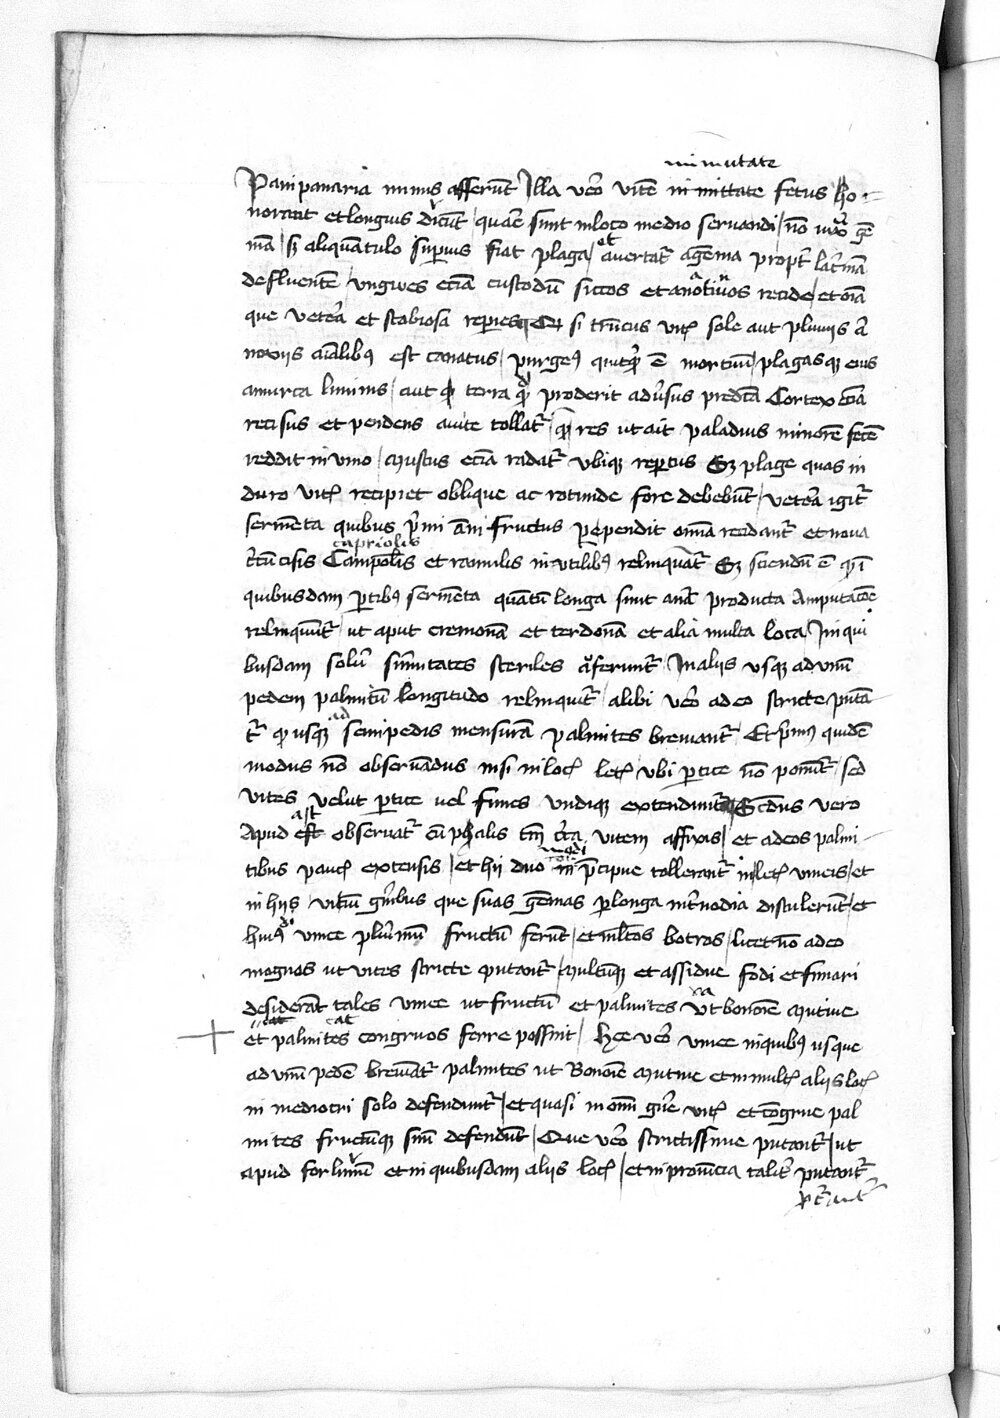 mi mutate
Panpanaria minus afferunt Illa vero vitem in mittate fetus ho-
norant et longius dicunt quare sunt in loco medio servandi non iuxta gem
mam sed aliquantulo superius fiat plaga et avertatur a gemma propter lacrimam
defluentem ungues eciam custodum siccos et recide et omnia
que vetera et scabiosa reperies si truncus vitis sole aut pluviis aut
noxiis animalibus est cavatus purgemus quicquid est mortuum plagasque eius
amurca linimus aut terra quod proderit adversus predicta Cortex eciam
recisus et pendens a vite tollatur que res ut ait paladius minorem fecem
reddit in vino muscus eciam radatur ubique repertus Sed plage quas in
duro vitis recipiet oblique ac rotunde fore debebunt vetera igitur
sermenta quibus primi anni fructus pependit omnia recidantur et nova
capriolis
circumcisis Campolis et ramulis inutilibus relinquantur Sed sciendum est quod in
quibusdam partibus sermenta quantum longa sunt anno producta Amputacione
relinquuntur ut aput cremonam et terdonam et alia multa loca In qui
busdam solum sumitates steriles auferuntur In aliis usque ad unum
pedem palmitum longitudo relinquitur alibi vero adeo stricte putan
ad
tur quod usque semipedis mensuram palmites breviantur Et primus quidem
modus non observandus nisi in locis letis ubi pertice non ponuntur sed
vites velut pertice vel funes undique extenduntur Secundus vero
ast
Apud est observatur cum palis tantum circa vitem affixis et adeos palmi-
tibus paucis extensis et hii duo modi in precipue tollerantur in letis vineis et
in hiis vitium generibus que suas gemmas per longa internodia distulerunt et
huiusmodi vinee plurimum fructum ferunt et multos botros licet non adeo
magnos ut vites stricte putantur multumque et assidue fodi et fimari
desiderant tales vinee ut fructum et palmites ut bononie mutine
vacat cat
et palmites congruos ferre possint Hee vero vinee in quibus usque
ad unum pedem breviantur palmites ut Bononie mutine et in multis aliis locis
in mediocri solo defenduntur et quasi in omni genere vitis et congrue pal
mites fructumque suum defendunt Que vero strictissime putantur ut
apud forlivium et in quibusdam aliis locis et in provincia taliter putantur